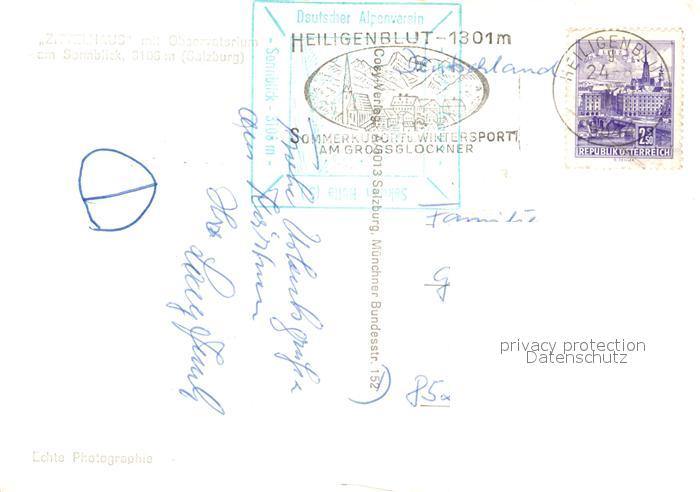 „ZITTELHAUS" mit Observatorium
am Sonnblick, 3106 m (Salzburg)
Deutscher Alpenverein
- Sonnblick 3106 m -
HEILIGENBLUT - 1301m
SOMMERKURORT u WINTERSPORT
AM GROSSGLOCKNER
HEILIGENBL
24
2.50
REPUBLIK ÖSTERREICH
Deutschland
Cosy-Verlag, 5013 Salzburg, Münchner Bundesstr. 152
Frohe Urlaubsgrüße
aus Kärnten
Familie
privacy protection
Datenschutz
85
Echte Photographie